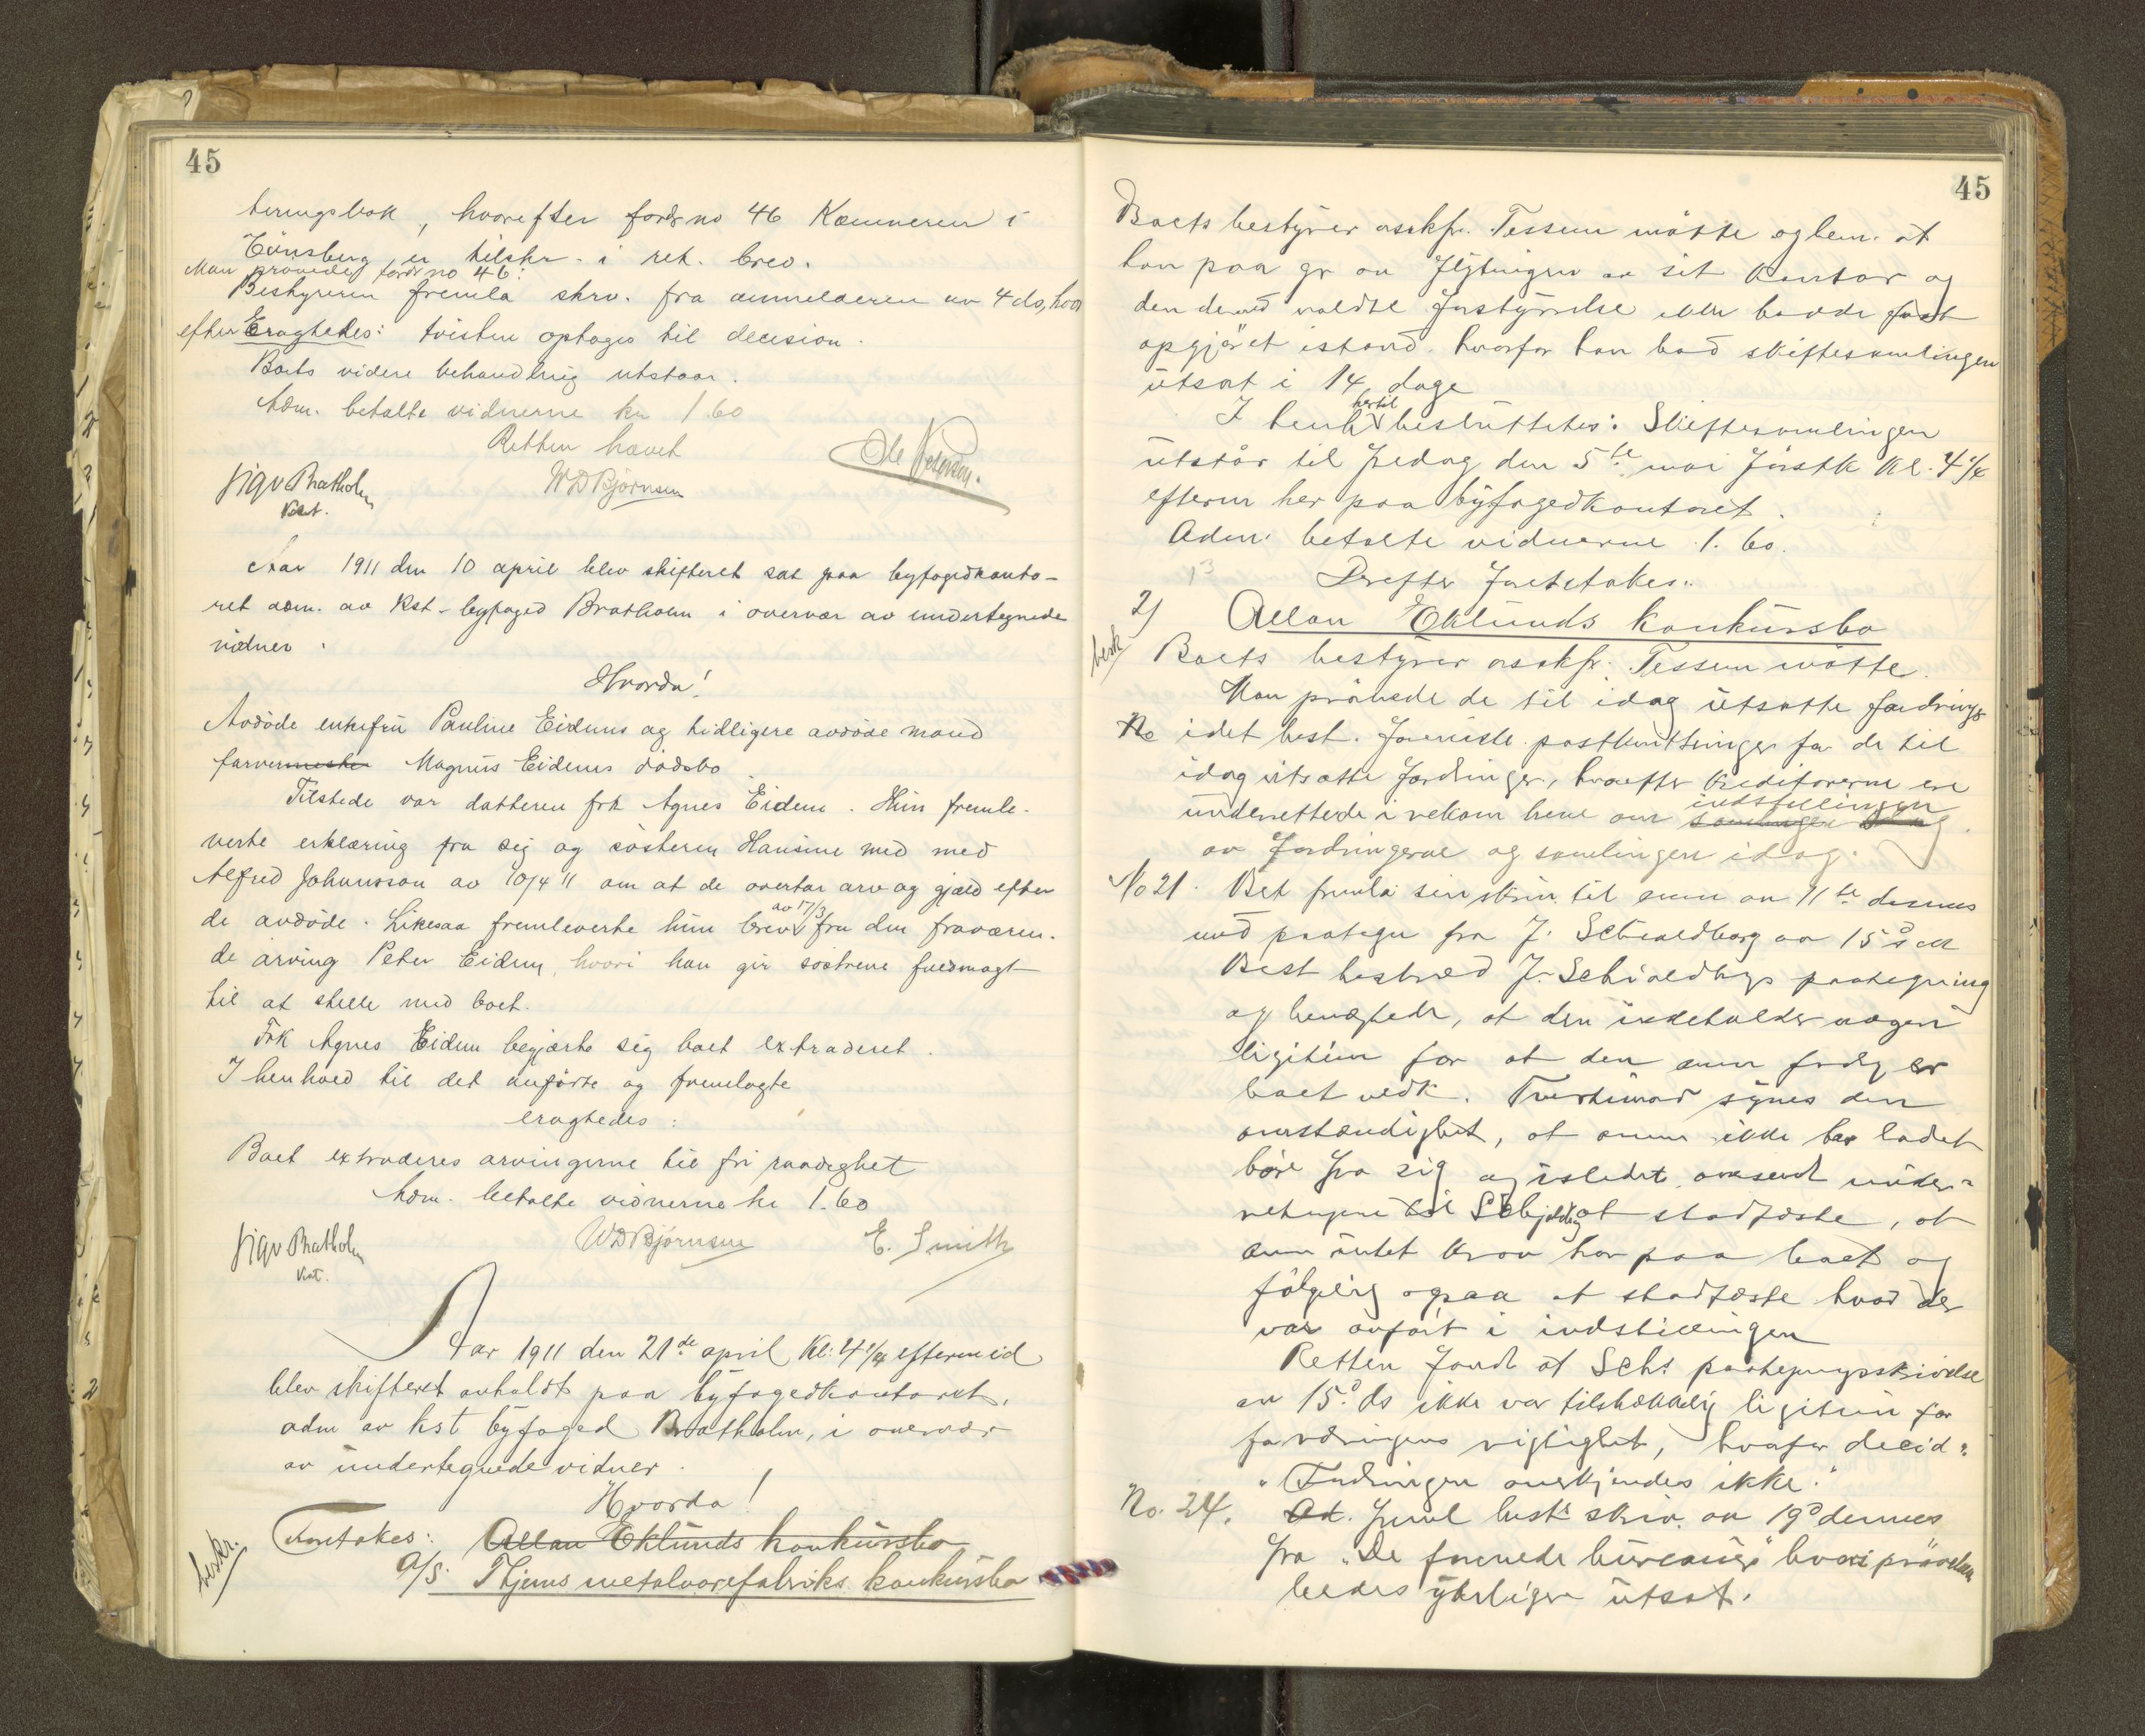 45
teringsbok, hvorefter fordr no 46 Kæmneren i
Tönsberg er tilskr. i rek. brev.
Man prövede fordr no 46:
Bestyreren fremla skrv. fra anmelderen av 4 ds, hvor
efter Eragtedes: tvisten optages til decision.
Boets videre behandling utstaar.
Adm. betalte vidnerne kr 1.60
Retten hævet
Sigv Bratholm WD Bjørnsen Ole Petersen.
Kst.
Aar 1911 den 10 april blev skifteret sat paa byfogedkonto-
ret adm. av Kst. byfoged Bratholm i overvær av undertegnede
vidner.
Hvorda!
Avdöde enkefru Pauline Eidems og tidligere avdöde mand
farvermester Magnus Eidems dödsbo
Tilstede var datteren frk Agnes Eidem. Hun fremle-
verte erklæring fra sig og sösteren Hansine med med
Alfred Johansson av 10/4 11 om at de overtar arv og gjæld efter
de avdöde. Likesaa fremleverte hun brev av 17/3 fra den fraværen-
de arving Peter Eidem, hvori han gir söstrene fuldmagt
til at stelle med boet.
Frk Agnes Eidem begjærte sig boet extraderet.
I henhold til det anförte og fremlagte
eragtedes:
Boet extraderes arvingerne til fri raadighet
Adm. betalte vidnerne kr 1.60
Sigv Bratholm WD Bjørnsen E. Smith
Kst.
Aar 1911 den 21de april Kl: 4 1/4 eftermid
blev skifteret avholdt paa byfogedkontoret,
adm av kst byfoged Bratholm, i overvær
av undertegnede vidner.
Hvorda!
beskr. Foretokes: Allan Eklunds konkursbo
A/S. Thjems metalvarefabriks konkursbo
45
Boets bestyrer osckfr. Tessem mötte og bem. at
han paa gr av flytningen av sit kontor og
den derved voldte forstyrrelse ikke havde faat
opgjöret istand, hvorfor han bad skiftesamlingen
utsat i 14 dage
I henh hertil besluttetes: Skiftesamlingen
utstår til fredag den 5te mai förstk kl. 4 1/4
efterm her paa byfogedkontoret.
Adm. betalte vidnerne 1.60.
Derefter foretokes:
2) Allan Eklunds konkursbo
besk Boets bestyrer osckfr. Tessem mötte.
Man prövede de til idag utsatte fordringer
No idet best. foreviste postkvitteringer for de til
idag utsatte fordringer, hvorefter kreditorerne er
underrettede i rekom breve om samlingen idag indstillingen
av fordringerne og samlingen idag.
No 21. Best fremla sin skriv. til anm av 11te dennes
med paategn fra J. Schjoldborg av 15 ds
Best bestred J. Schjoldborgs paategning
og benegtede, at den indeholder nogen
legitim for at den anm fordr er
boet vedk. Tvertimod synes den
omstændighet, at anm ikke har ladet
höre fra sig og istedet oversendt under-
retningen til Schjoldbg at stadfæste, at
anm intet krav har paa boet og
fölgelig ogsaa at stadfæste hvad der
var anfört i indstillingen
Retten fandt at Schs paategningsskrivelse
av 15 ds ikke var tilstrækkelig legitim for
fordringens rigtighet, hvorfor decid:
"Fordringen anerkjendes ikke."
No. 24. Ad. freml best. skriv. av 19 dennes
fra "De forenede bureauer" hvori prövelsen
bedes yderligere utsat.